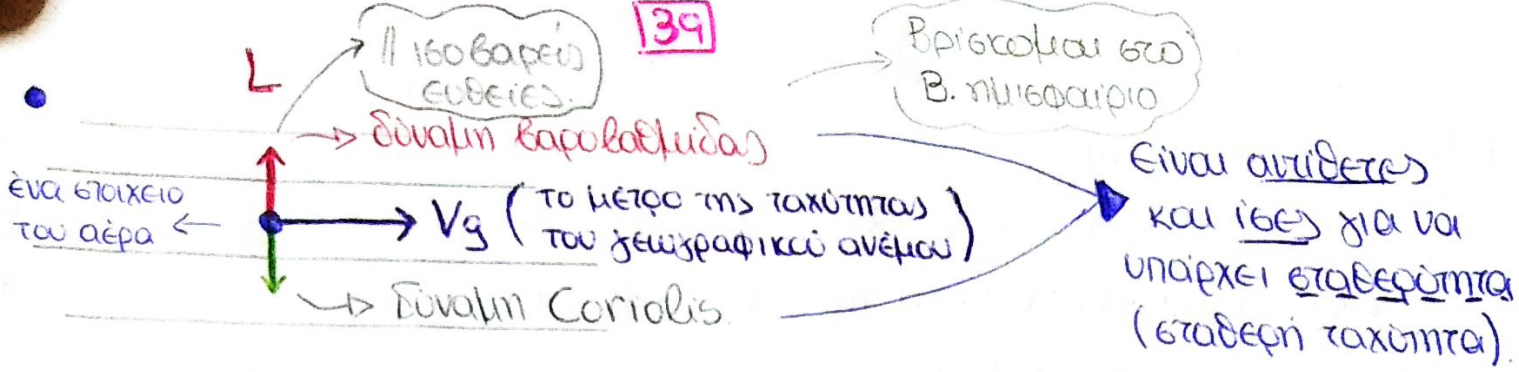 39
L
|| ισοβαρείς
ευθείες.
Βρίσκομαι στο
Β. ημισφαίριο
→ δύναμη βαροβαθμίδας
ένα στοιχείο
του αέρα ←
Vg ( το μέτρο της ταχύτητας
του γεωγραφικού ανέμου )
→ δύναμη Coriolis.
Είναι αντίθετες
και ίσες για να
υπάρχει σταθερότητα
(σταθερή ταχύτητα).